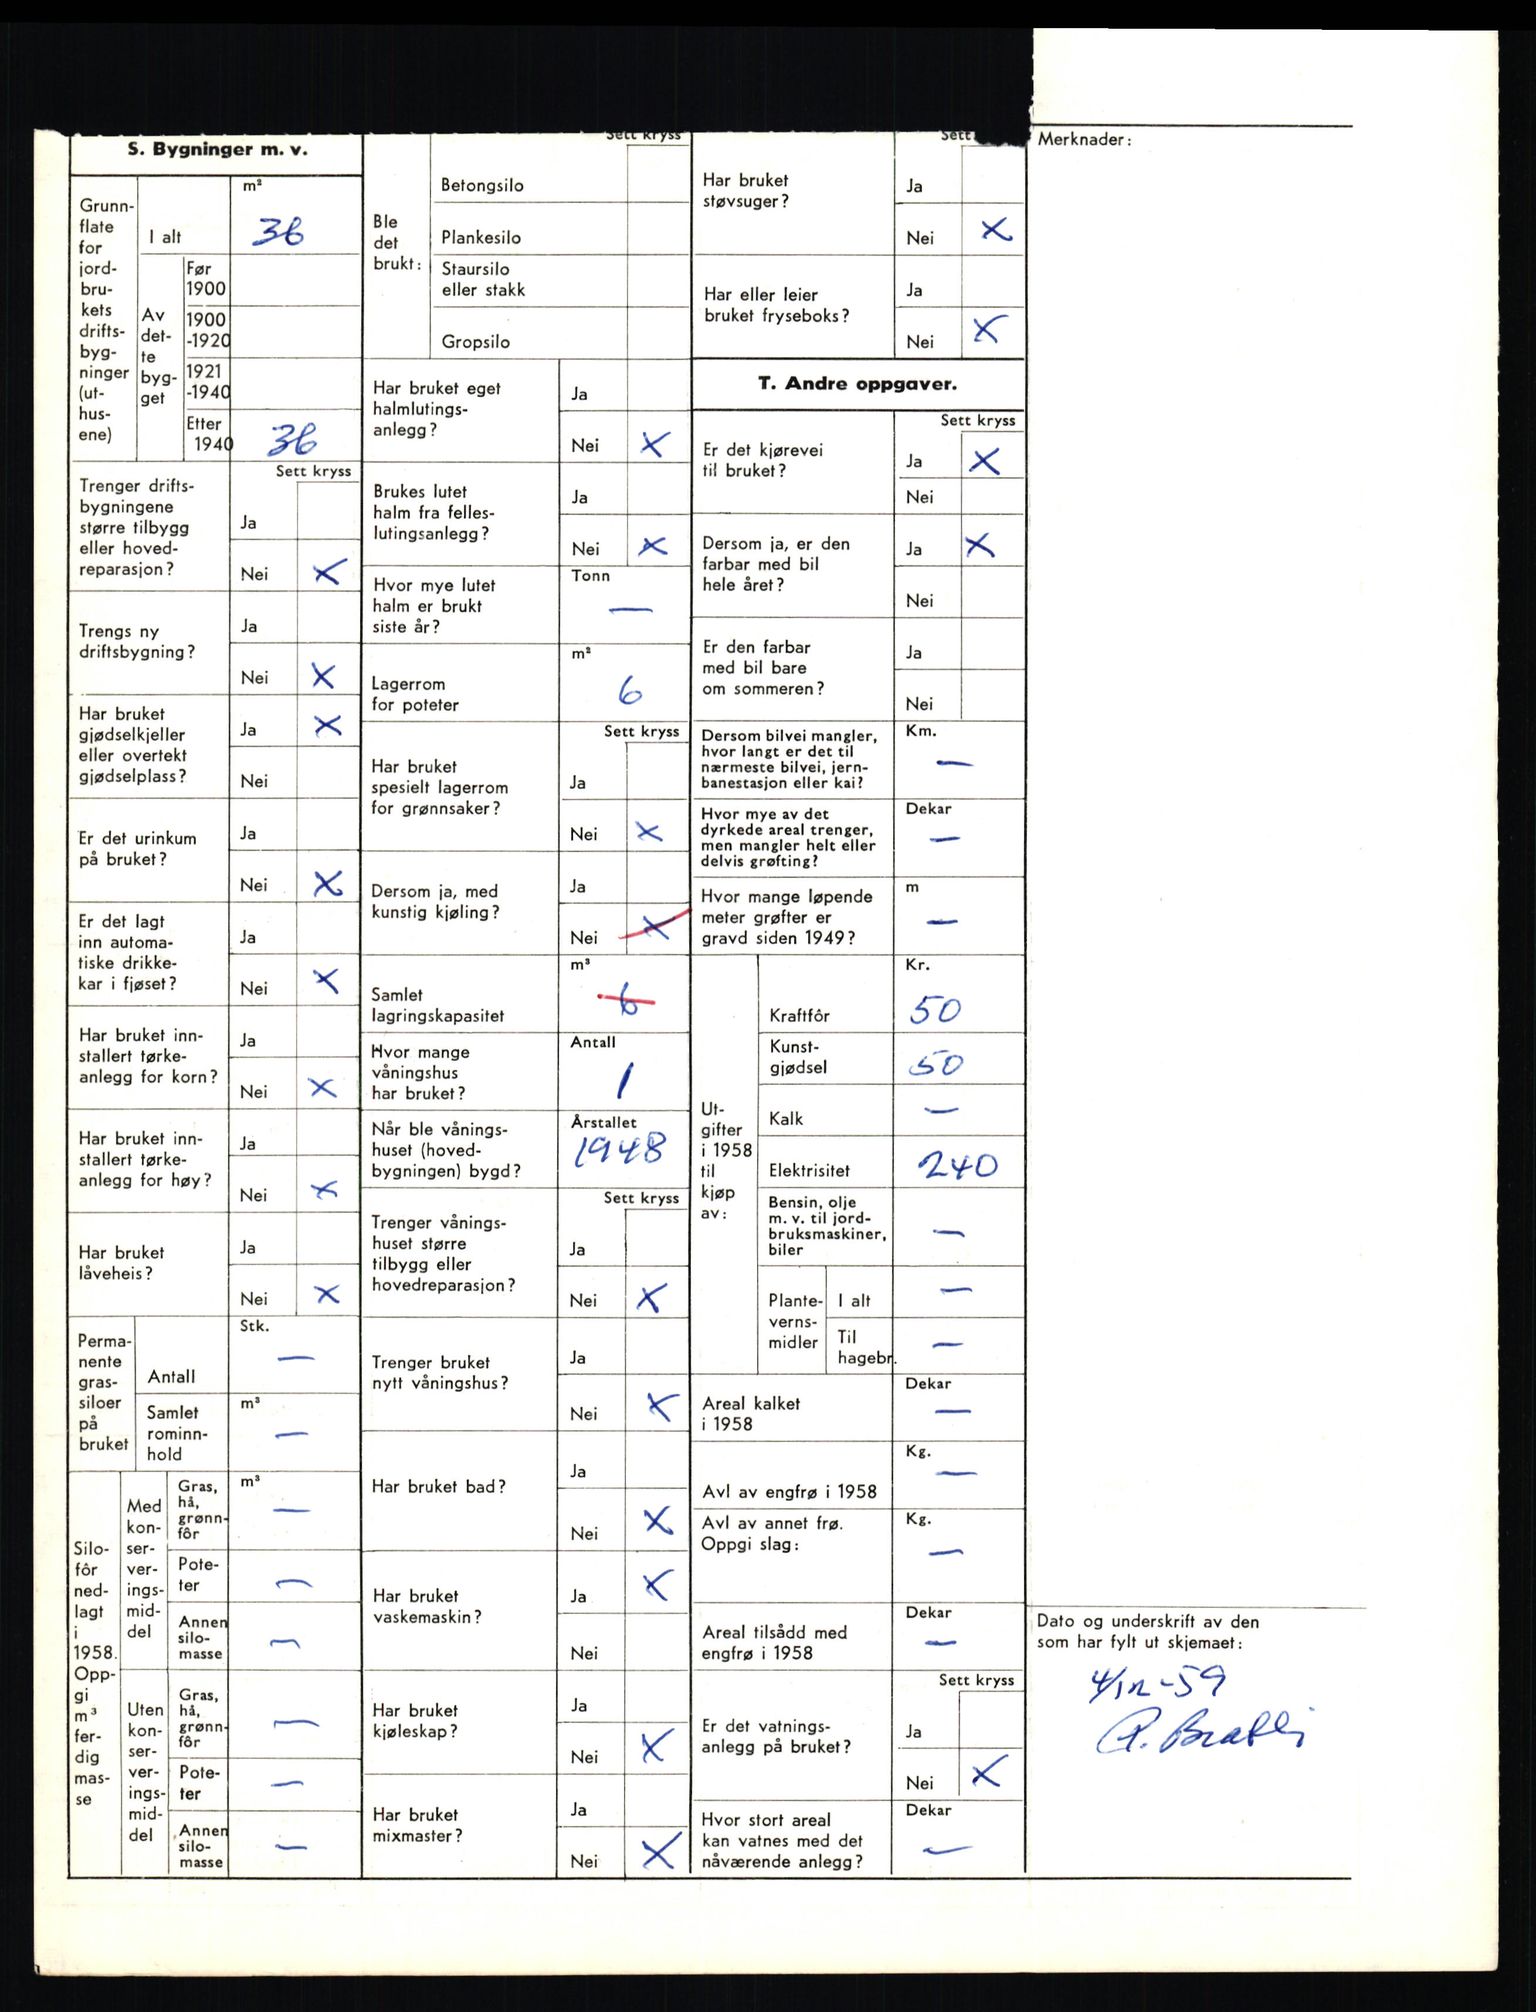 S. Bygninger m. v.
Grunn-
flate
for
jord-
bru-
kets
drifts-
byg-
ninger
(ut-
hus-
ene)
I alt
m²
36
Av
det-
te
byg-
get
Før
1900
1900
-1920
1921
-1940
Etter
1940
36
Sett kryss
Trenger drifts-
bygningene
større tilbygg
eller hoved-
reparasjon?
Ja
Nei X
Trengs ny
driftsbygning?
Ja
Nei X
Har bruket
gjødselkjeller
eller overtekt
gjødselplass?
Ja X
Nei
Er det urinkum
på bruket?
Ja
Nei X
Er det lagt
inn automa-
tiske drikke-
kar i fjøset?
Ja
Nei X
Har bruket inn-
stallert tørke-
anlegg for korn?
Ja
Nei X
Har bruket inn-
stallert tørke-
anlegg for høy?
Ja
Nei X
Har bruket
låveheis?
Ja
Nei X
Perma-
nente
gras-
siloer
på
bruket
Antall
Stk.
—
Samlet
rominn-
hold
m³
—
Silo-
fôr
ned-
lagt
i
1958.
Opp-
gi
m³
fer-
dig
mas-
se
Med
kon-
ser-
ver-
ings-
mid-
del
Gras,
hå,
grønn-
fôr
m³
—
Pote-
ter
—
Annen
silo-
masse
—
Uten
kon-
ser-
ver-
ings-
mid-
del
Gras,
hå,
grønn-
fôr
—
Pote-
ter
—
Annen
silo-
masse
—
Sett kryss
Ble
det
brukt:
Betongsilo
Plankesilo
Staursilo
eller stakk
Gropsilo
Har bruket eget
halmlutings-
anlegg?
Ja
Nei X
Brukes lutet
halm fra felles-
lutingsanlegg?
Ja
Nei X
Hvor mye lutet
halm er brukt
siste år?
Tonn
—
Lagerrom
for poteter
m²
6
Sett kryss
Har bruket
spesielt lagerrom
for grønnsaker?
Ja
Nei X
Dersom ja, med
kunstig kjøling?
Ja
Nei X
Samlet
lagringskapasitet
m³
6
Hvor mange
våningshus
har bruket?
Antall
1
Når ble vånings-
huset (hoved-
bygningen) bygd?
Årstallet
1948
Sett kryss
Trenger vånings-
huset større
tilbygg eller
hovedreparasjon?
Ja
Nei X
Trenger bruket
nytt våningshus?
Ja
Nei X
Har bruket bad?
Ja
Nei X
Har bruket
vaskemaskin?
Ja X
Nei
Har bruket
kjøleskap?
Ja
Nei X
Har bruket
mixmaster?
Ja
Nei X
Sett
Har bruket
støvsuger?
Ja
Nei X
Har eller leier
bruket fryseboks?
Ja
Nei X
T. Andre oppgaver.
Sett kryss
Er det kjørevei
til bruket?
Ja X
Nei
Dersom ja, er den
farbar med bil
hele året?
Ja X
Nei
Er den farbar
med bil bare
om sommeren?
Ja
Nei
Dersom bilvei mangler,
hvor langt er det til
nærmeste bilvei, jern-
banestasjon eller kai?
Km.
—
Hvor mye av det
dyrkede areal trenger,
men mangler helt eller
delvis grøfting?
Dekar
—
Hvor mange løpende
meter grøfter er
gravd siden 1949?
m
—
Ut-
gifter
i 1958
til
kjøp
av:
Kraftfôr
Kr.
50
Kunst-
gjødsel
50
Kalk
—
Elektrisitet
240
Bensin, olje
m. v. til jord-
bruksmaskiner,
biler
—
Plante-
verns-
midler
I alt
—
Til
hagebr.
—
Areal kalket
i 1958
Dekar
—
Avl av engfrø i 1958
Kg.
—
Avl av annet frø.
Oppgi slag:
Kg.
—
Areal tilsådd med
engfrø i 1958
Dekar
—
Sett kryss
Er det vatnings-
anlegg på bruket?
Ja
Nei X
Hvor stort areal
kan vatnes med det
nåværende anlegg?
Dekar
—
Merknader:
Dato og underskrift av den
som har fylt ut skjemaet:
4/12-59